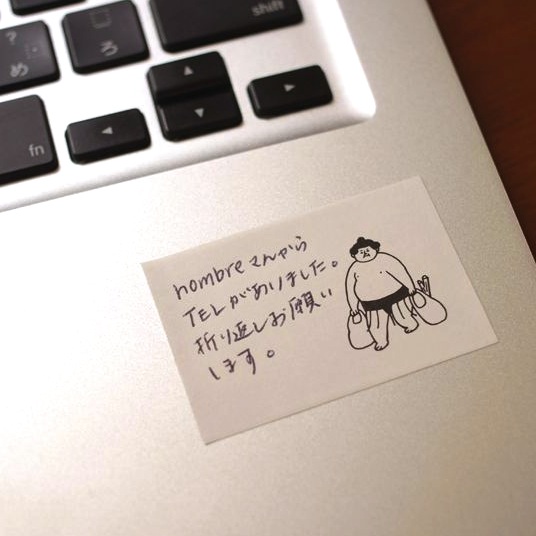 shift
?
め
ろ
fn
nombreさんから
TELがありました。
折り返しお願い
します。